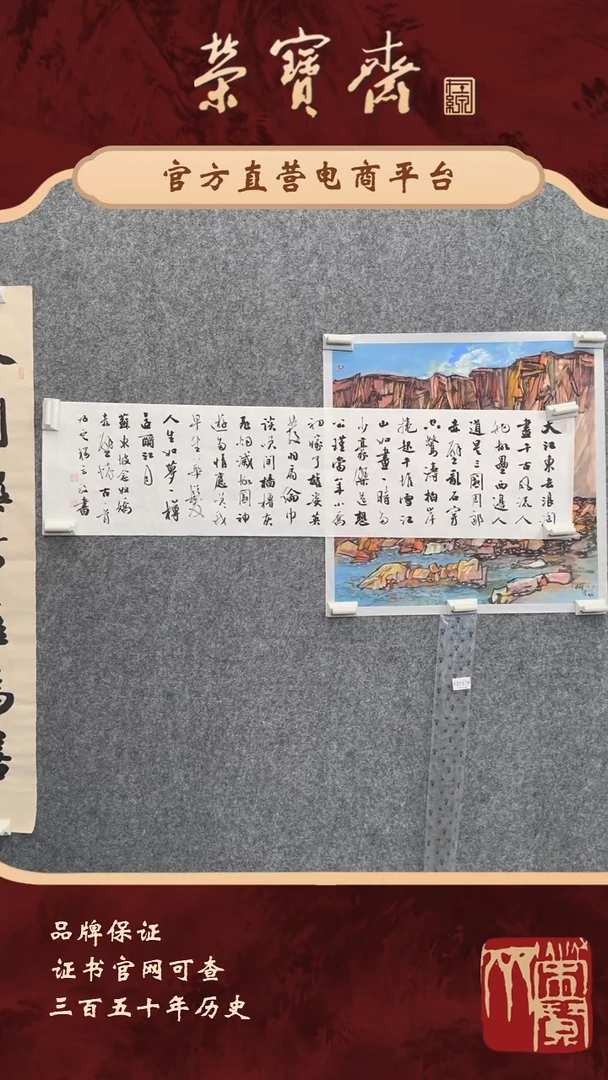 榮寶齋
官方直营电商平台
大江東去浪淘
盡千古風流人
物故壘西邊人
道是三國周郎
赤壁亂石穿
空驚濤拍岸
捲起千堆雪江
山如畫一時多
少豪傑遙想
公瑾當年小喬
初嫁了雄姿英
發羽扇綸巾
談笑間檣櫓灰
飛烟滅故國神
遊多情應笑我
早生華髮
人生如夢一樽
還酹江月
蘇東坡念奴嬌
赤壁懷古
品牌保证
证书官网可查
三百五十年历史
榮寶